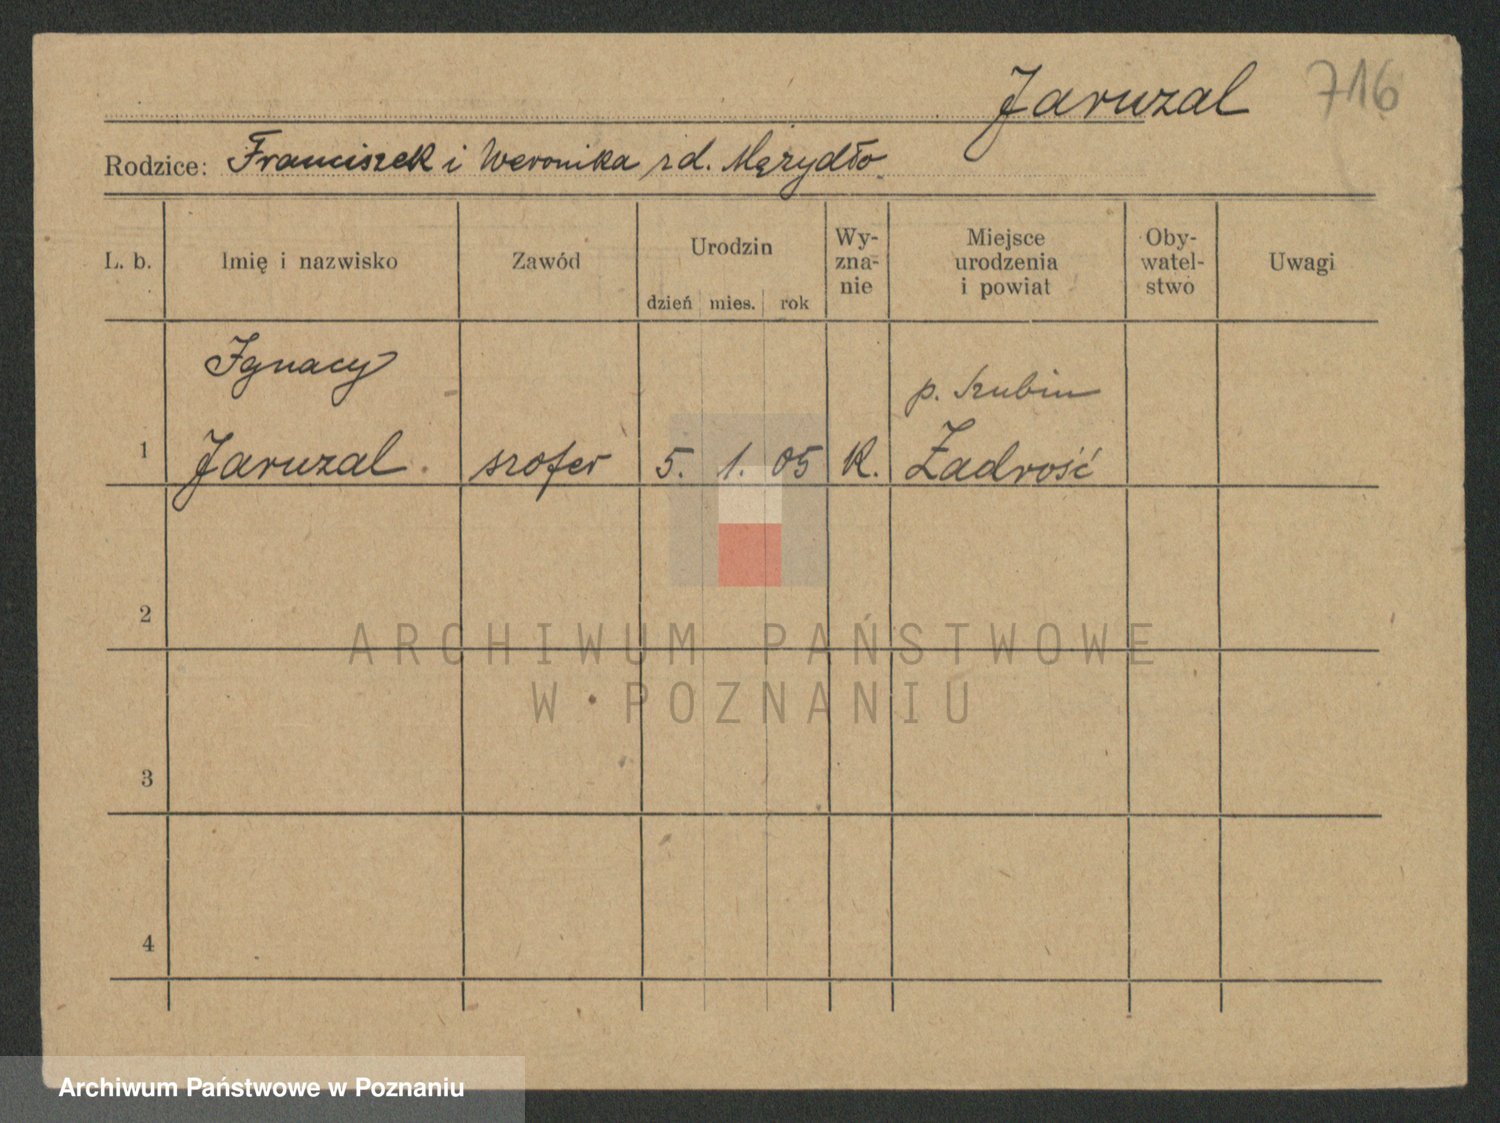 Jaruzal 716
Rodzice: Franciszek i Weronika zd. Mężydło
L. b. Imię i nazwisko Zawód Urodzin Wy-zna-nie Miejsce urodzenia i powiat Oby-watel-stwo Uwagi
dzień mies. rok
Ignacy
p. Szubin
1 Jaruzal szofer 5. 1. 05 K. Zadrość
2
ARCHIWUM PAŃSTWOWE
W POZNANIU
3
4
Archiwum Państwowe w Poznaniu